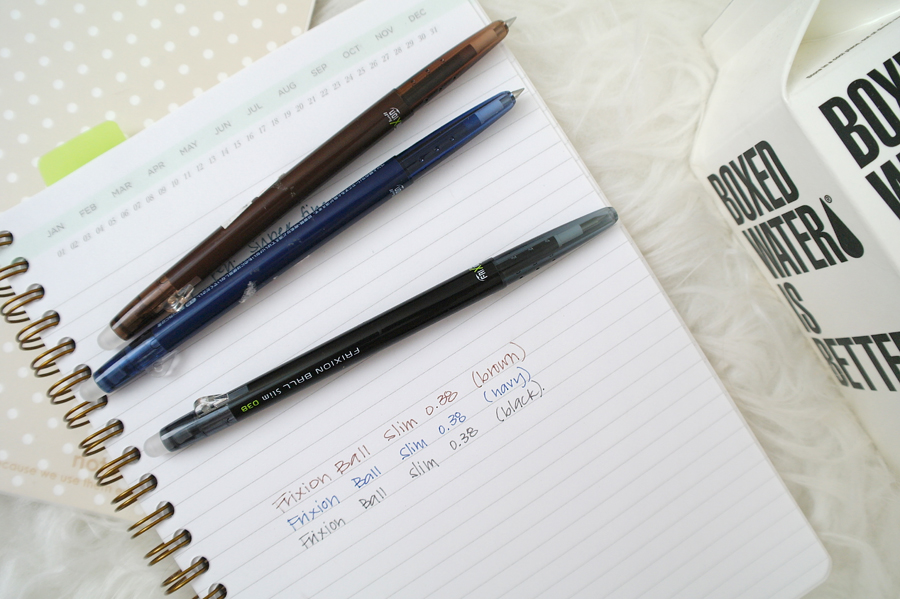 JAN FEB MAR APR MAY JUN JUL AUG SEP OCT NOV DEC
01 02 03 04 05 06 07 08 09 10 11 12 13 14 15 16 17 18 19 20 21 22 23 24 25 26 27 28 29 30 31
FRIXION BALL Slim 038
Frixion Ball Slim 0.38 (brown)
Frixion Ball Slim 0.38 (navy)
Frixion Ball slim 0.38 (black).
BOXED
WATER
IS
BETTE
BOX
W